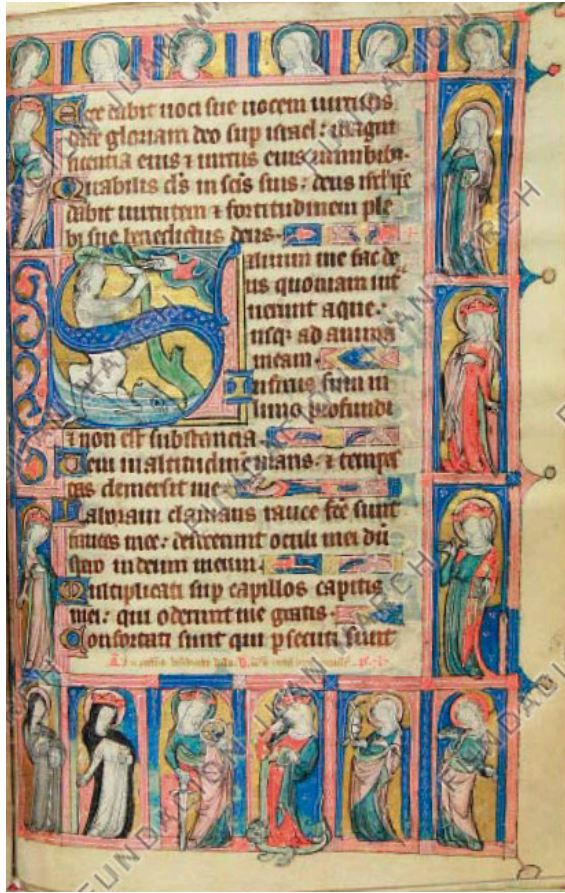 Ecce dabit uoci sue uocem uirtutis
date gloriam deo sup israel: magni
ficentia eius ⁊ uirtus eius in nubibꝫ
Mirabilis d̄s in sc̄is suis: deus isrl̄ ip̄e
dabit uirtutem ⁊ fortitudinem ple
bi sue benedictus deus.
Saluum me fac de
us quoniam int
uerunt aque:
usq; ad animā
meam.
Infixus sum in
limo profundi
⁊ non est substancia.
Veni in altitudinē maris: ⁊ tempes
tas demersit me
Laboraui clamans rauce fc̄e sunt
fauces mee: defecerunt oculi mei dū
spero in deum meum.
Multiplicati sup capillos capitis
mei: qui oderunt me gratis.
Confortati sunt qui psecuti sunt
FUNDACION JUAN MARCH